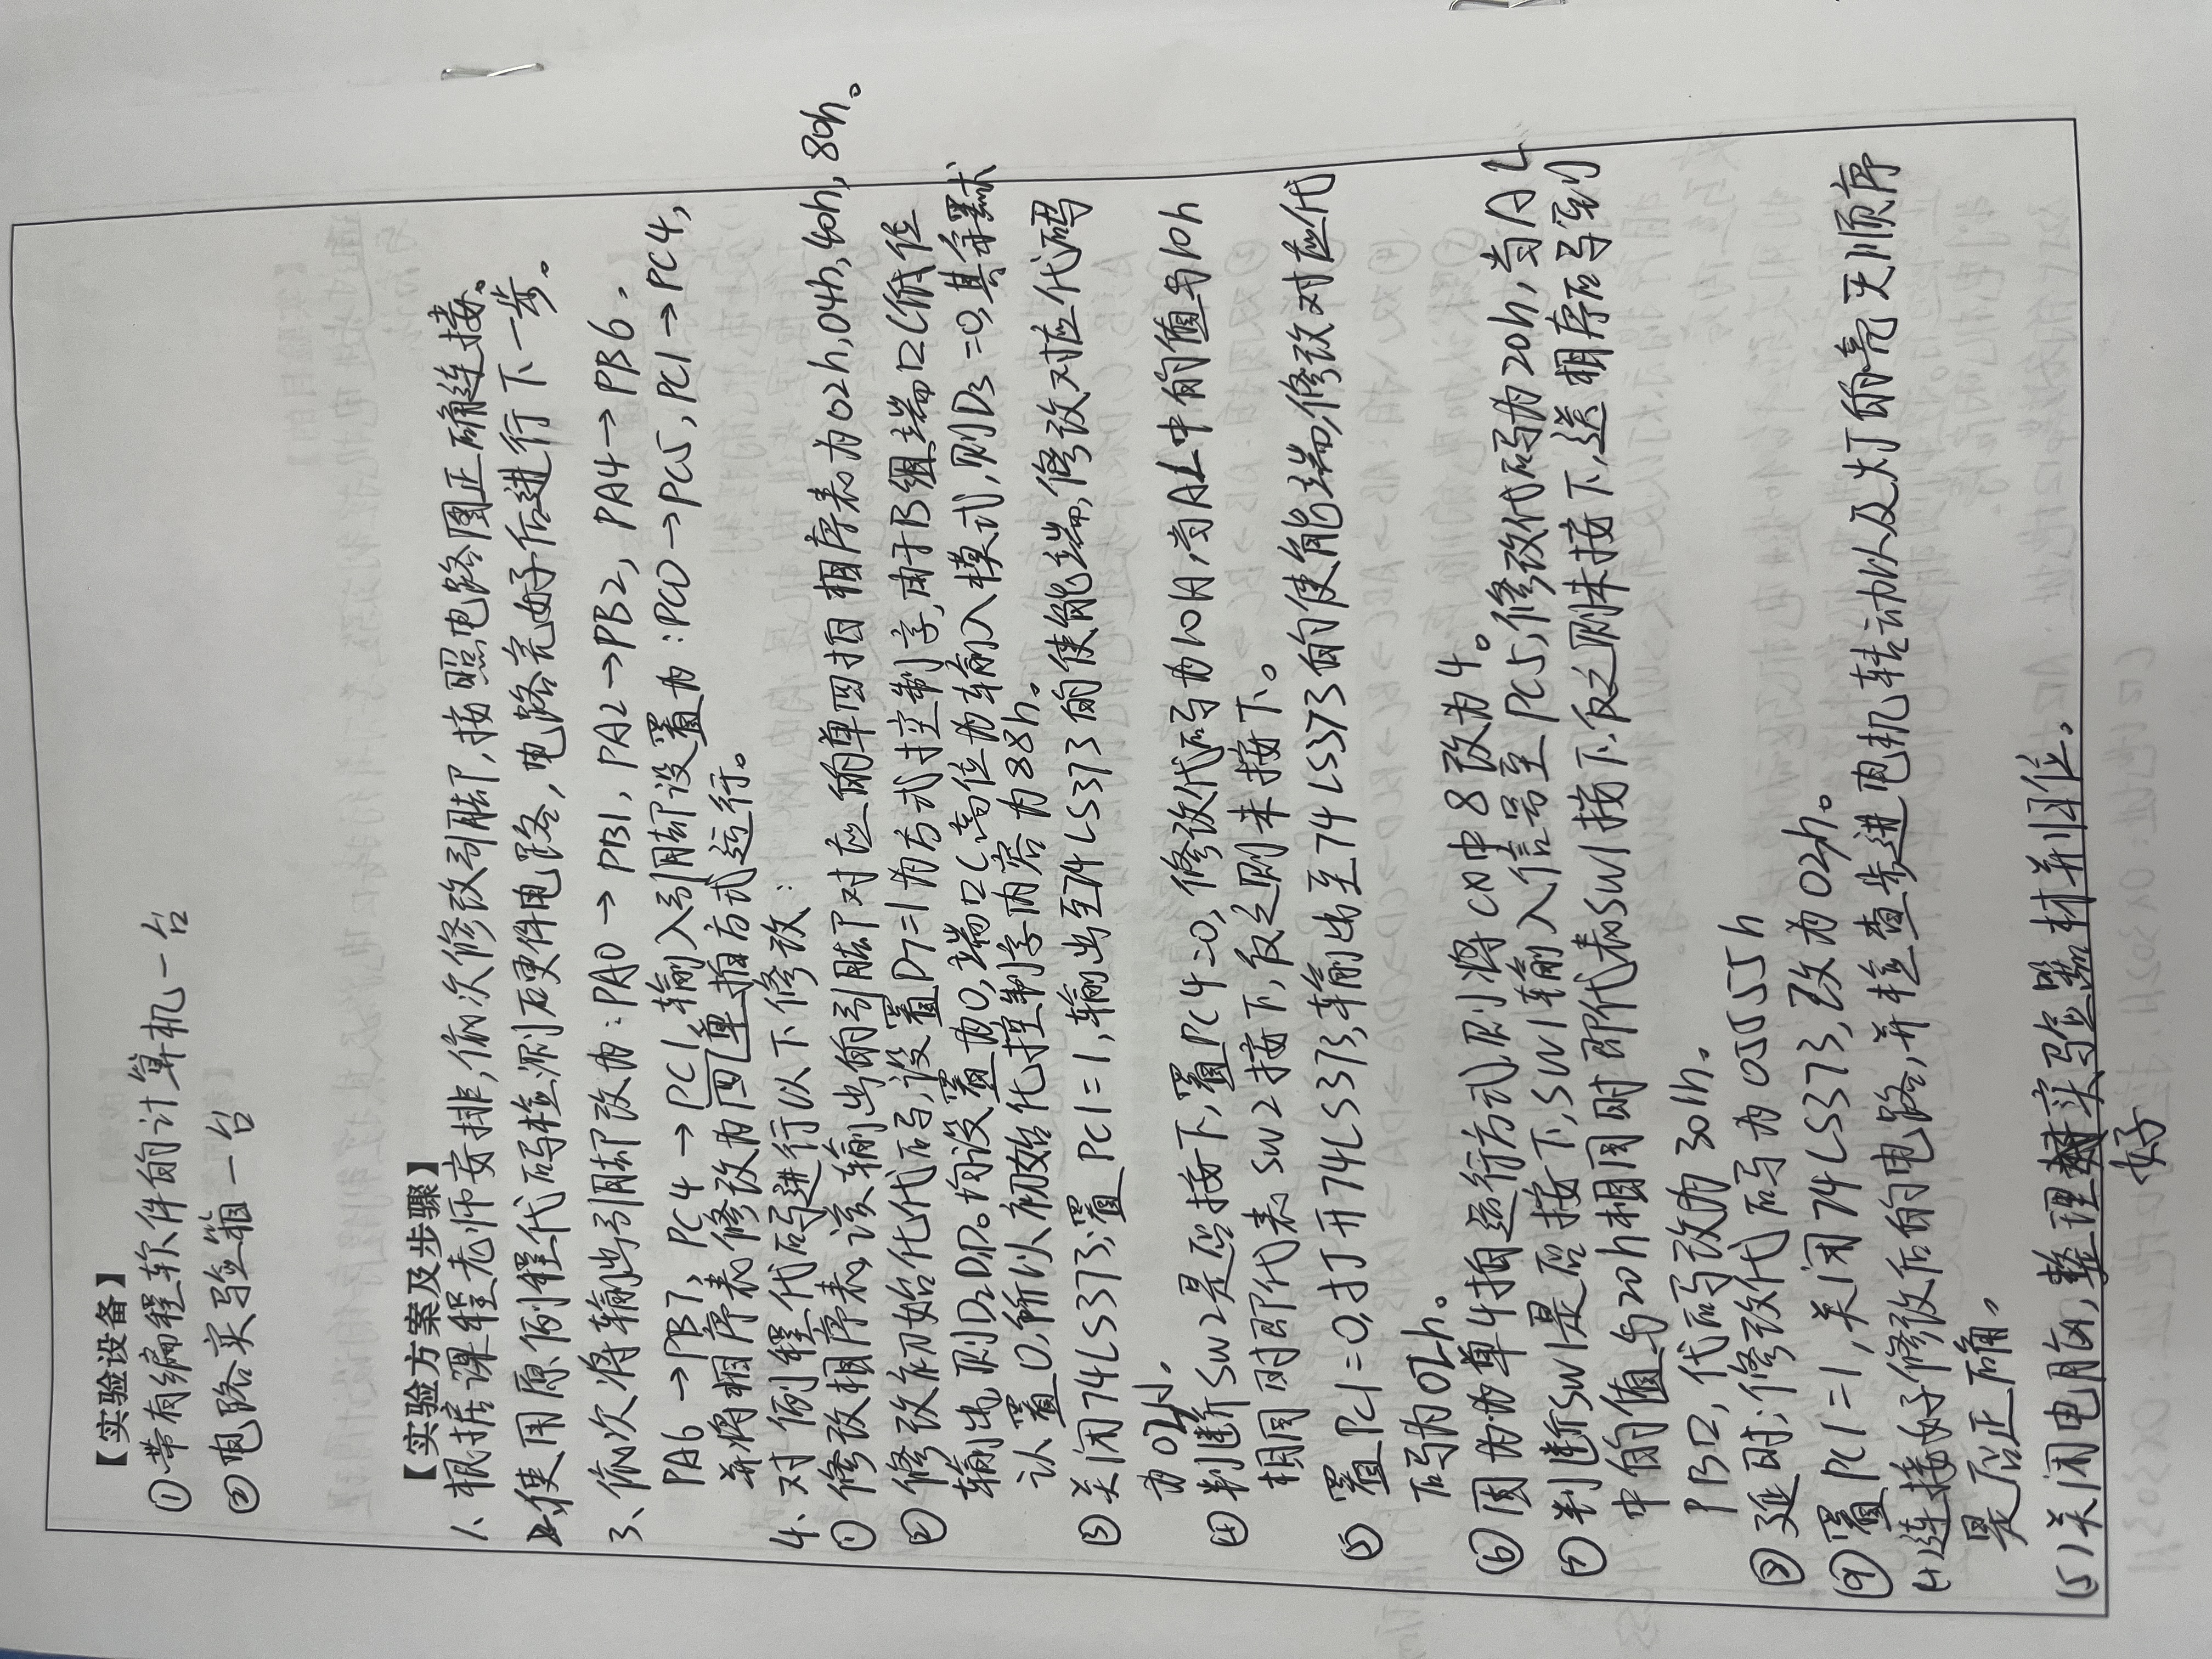 【实验设备】
①带有编程软件的计算机一台
②电路实验箱一台
【实验方案及步骤】
1、根据课程老师安排,依次修改引脚,按照电路图正确连接。
2、使用原例程代码检测硬件电路,电路完好后进行下一步。
3、依次将输出引脚改为:PA0→PB1,PA2→PB2,PA4→PB6,
PA6→PB7,PC4→PC1,输入引脚设置为:PC0→PC5,PC1→PC4,
并将相序表修改为四单拍方式运行。
4、对例程代码进行以下修改:
①修改相序表,该输出的引脚对应的单四拍相序表为02h,04h,40h,80h。
②修改初始化代码,设置D7=1为方式控制字,由于B组端口C低位
输出,则D2D1D0均设置为0,端口C高位为输入模式,则D3=0,其余默
认置0,所以初始化控制字内容为88h。
③关闭74LS373;置PC1=1,输出至74LS373的使能端,修改对应代码
为02H.
④判断SW2是否按下,置PC4=0,修改代码为10H,当AL中的值与10h
相同时即代表SW2按下,反之则未按下。
⑤置PC1=0,打开74LS373,输出至74LS373的使能端,修改对应代
码为02h。
⑥因为为单4拍运行方式,则将CX中8改为4。
⑦判断SW1是否按下,SW1输入信号至PC5,修改代码为20h,当AL
中的值与20h相同时即代表SW1按下,反之则未按下,送相序码到
PB口,代码改为301h.
⑧延时;修改代码为0555h
⑨置PC1=1,关闭74LS373,改为02h。
(4)连接好修改后的电路,并检查步进电机转动以及灯的亮灭顺序
是否正确。
(5)关闭电脑,整理好实验器材并归位。